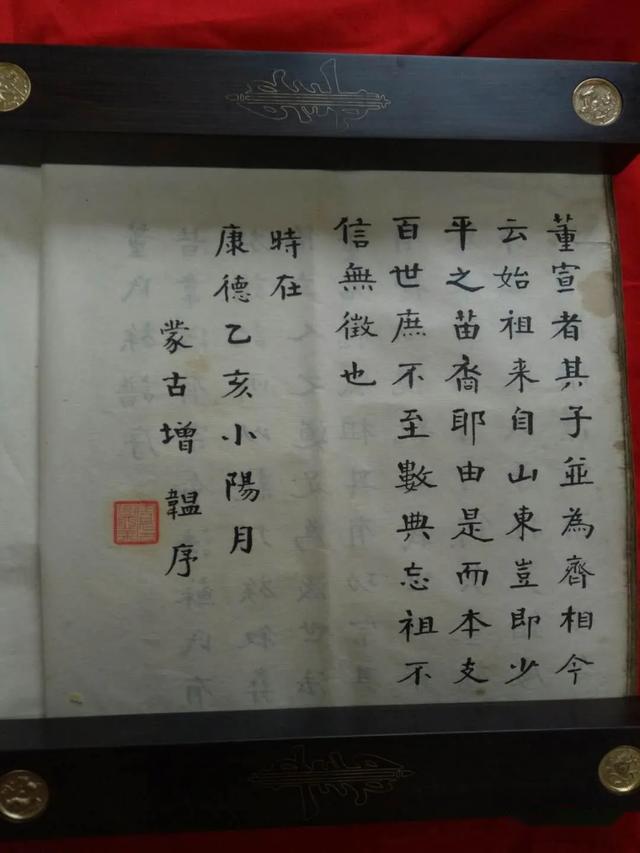 董宣者其子並為齊相今
云始祖来自山東豈即少
平之苗裔耶由是而本支
百世庶不至數典忘祖不
信無徵也
時在
康德乙亥小陽月
蒙古增韞序